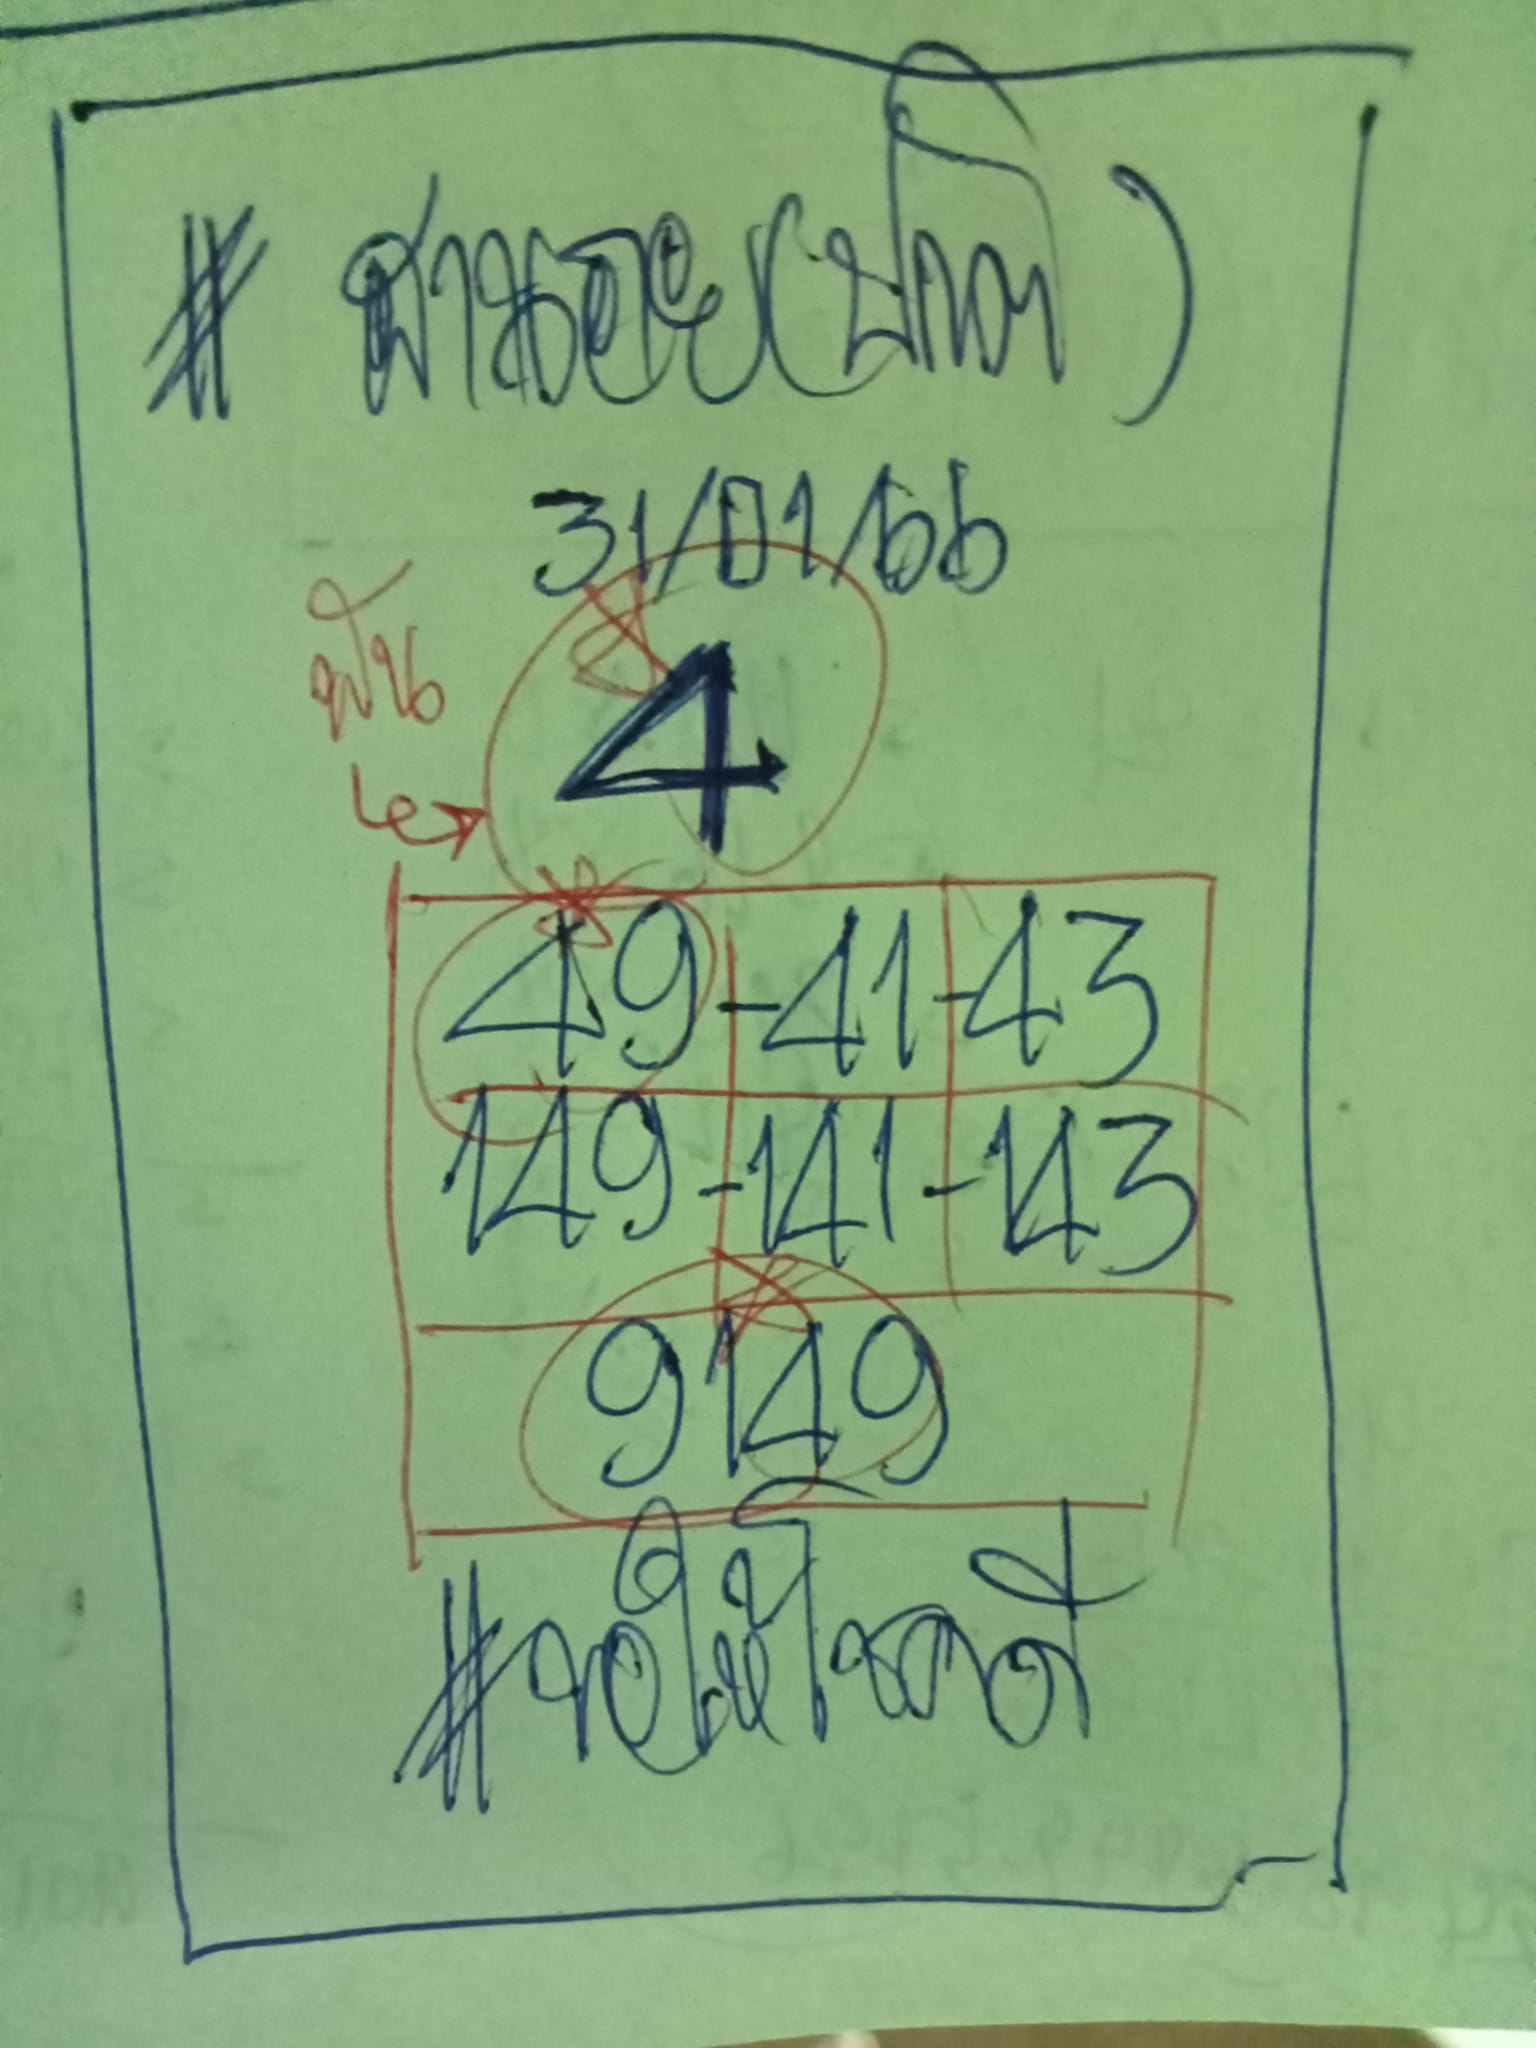 # ฮานอย (ปกติ)
31/01/66
ฟัน
4
49-41-43
149-141-143
9149
#ขอให้โชคดี